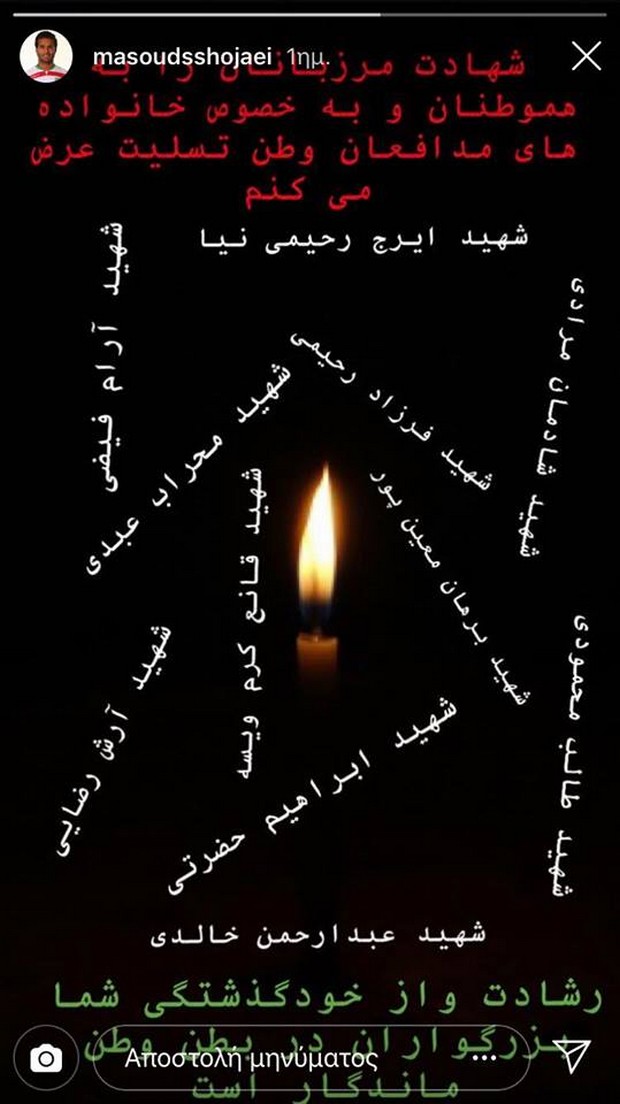 masoudsshojaei 1ημ.
شهادت مرزبانان را به
هموطنان و به خصوص خانواده
های مدافعان وطن تسلیت عرض
می کنم
شهید ایرج رحیمی نیا
شهید آرام فیضی
شهید شادمان مرادی
شهید فرزاد رحیمی
شهید محراب عبدی
شهید قانع کرم ویسه
شهید برهان معین پور
شهید آرش رضایی
شهید طالب محمودی
شهید ابراهیم حضرتی
شهید عبدارحمن خالدی
رشادت واز خودگذشتگی شما
بزرگواران در بطن وطن
ماندگار است
Αποστολή μηνύματος